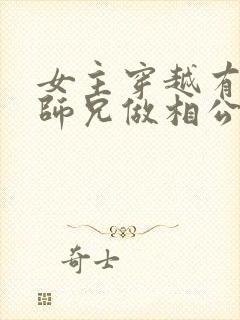 女主穿越有
師兄做相公
奇士